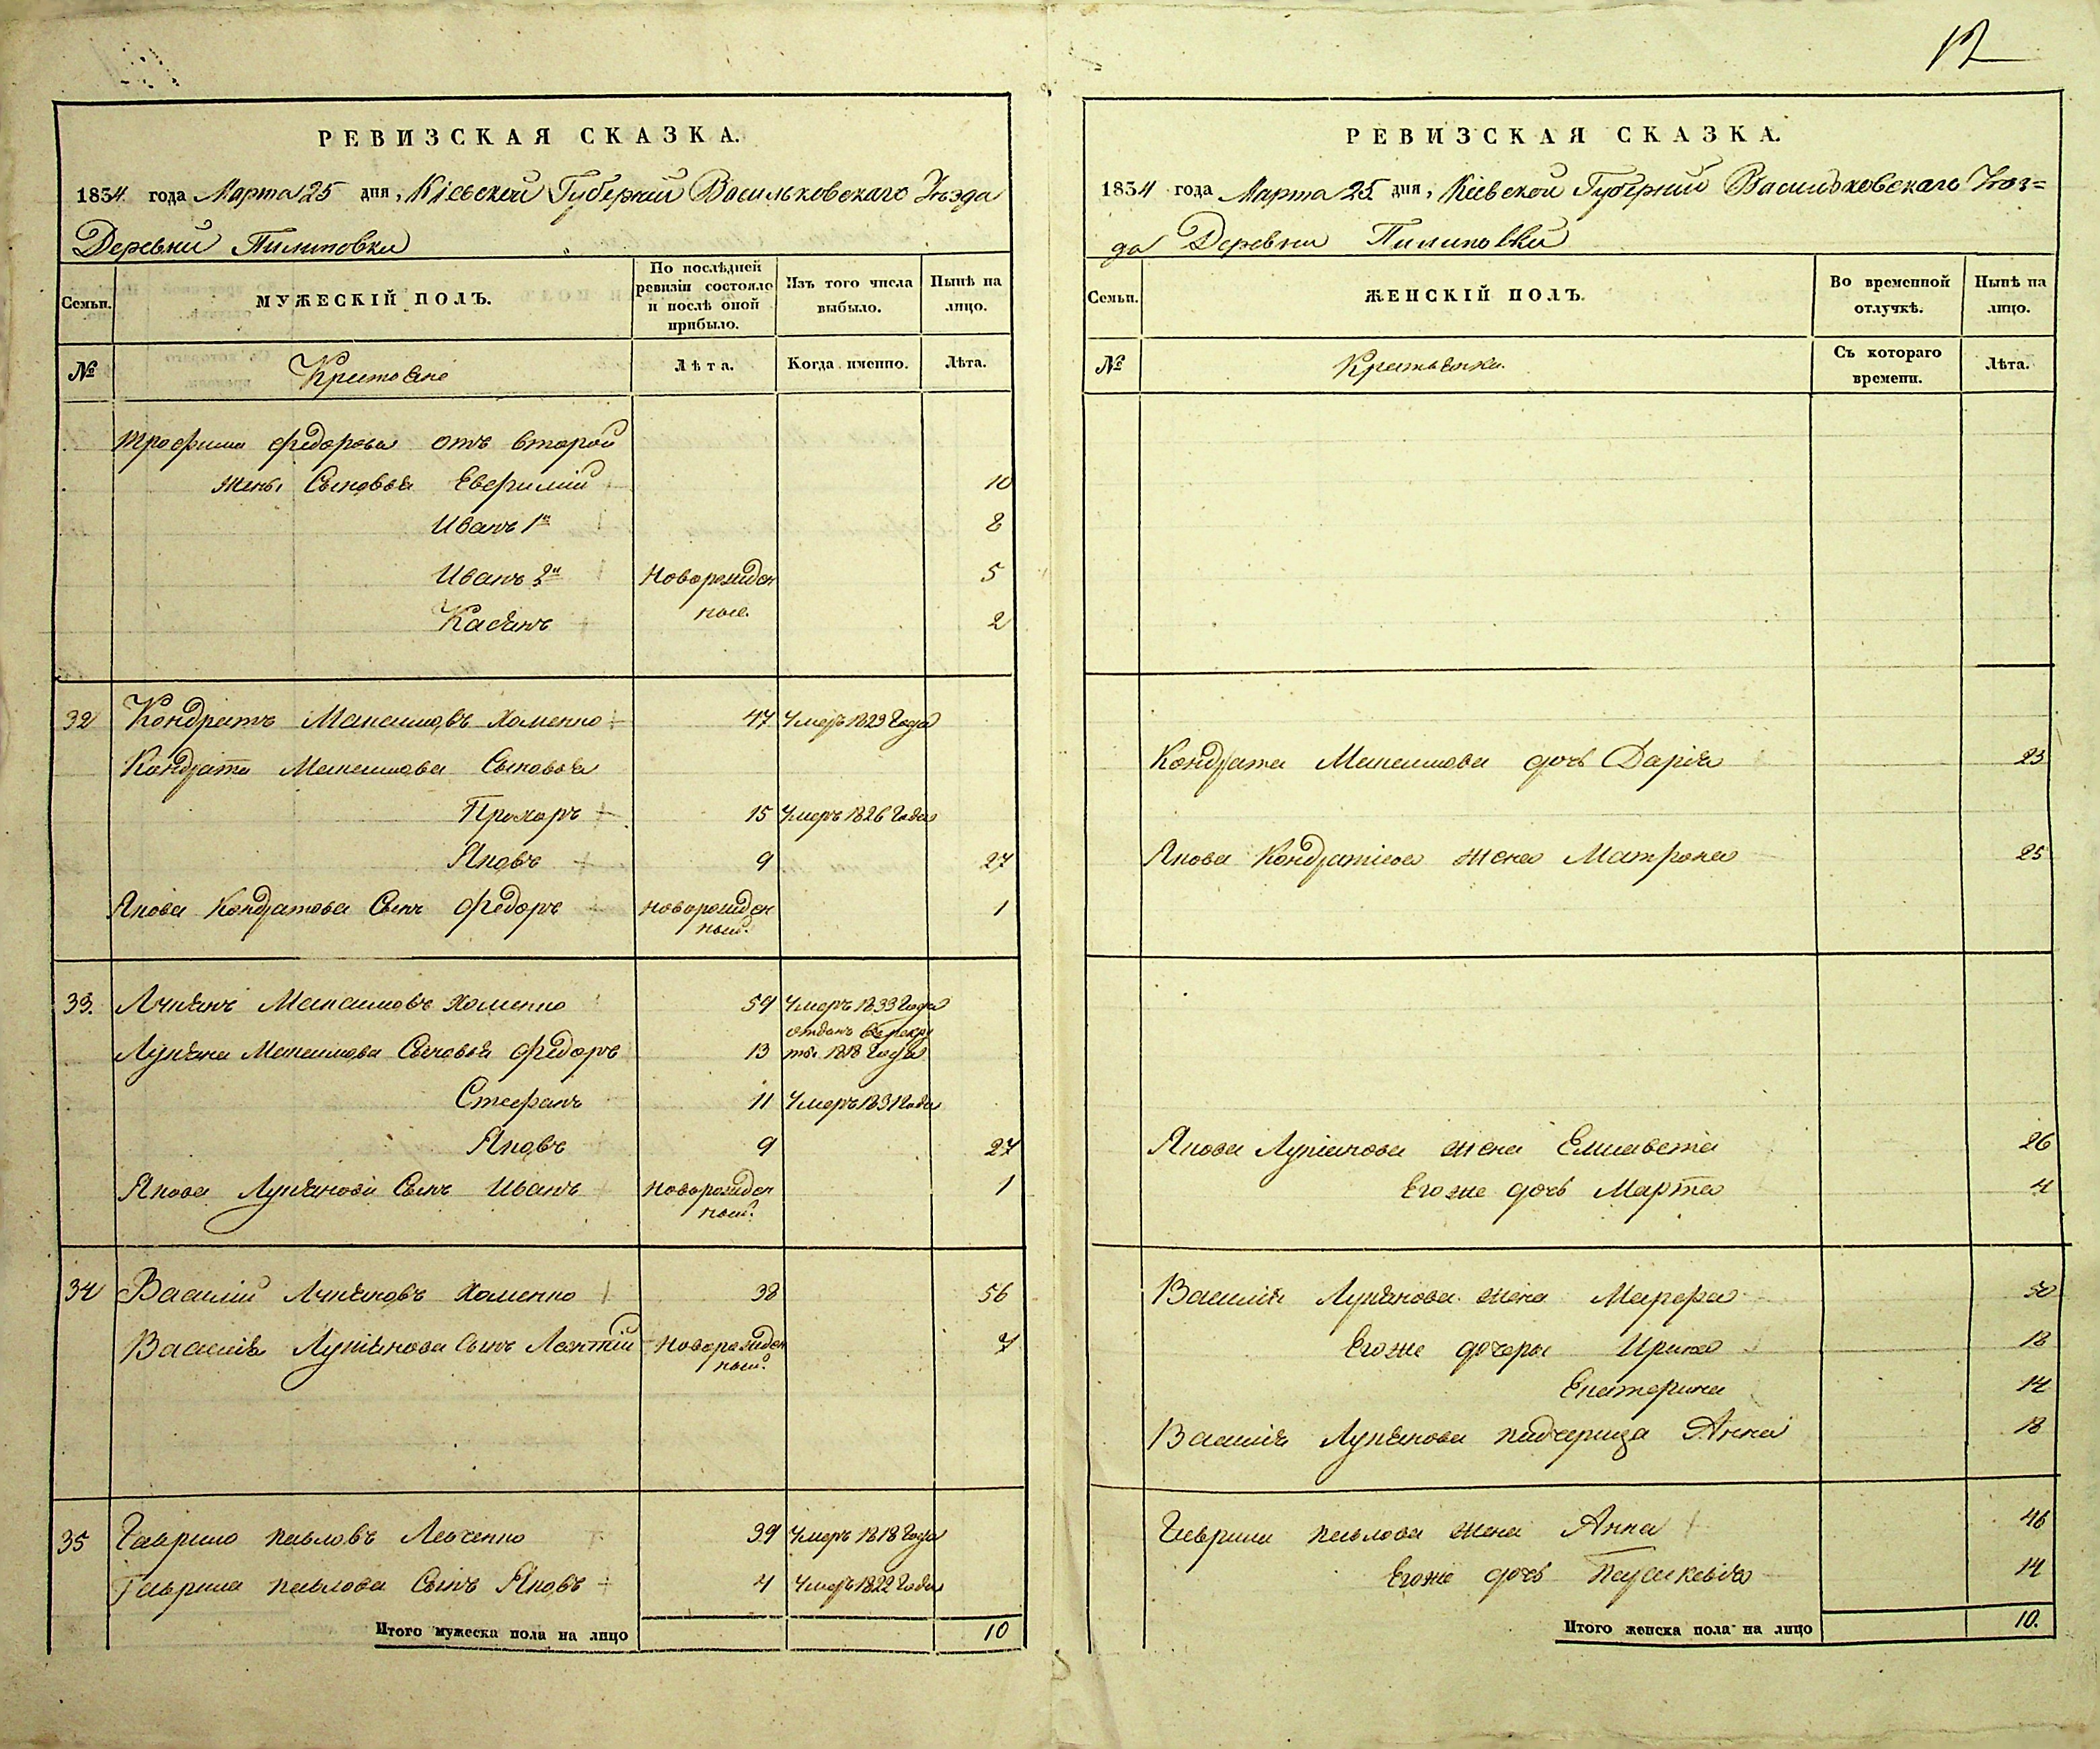 12
РЕВИЗСКАЯ СКАЗКА.
1834 года Марта 25 дня, Кіевской Губерніи Васильковскаго Уѣзда
Деревни Пилиповки
Семьи.
МУЖЕСКІЙ ПОЛЪ.
По послѣдней ревизіи состояло и послѣ оной прибыло.
Изъ того числа выбыло.
Нынѣ на лицо.
№
Крестьяне
Лѣта.
Когда именно.
Лѣта.
Трофима Федорова отъ второй
жены Сыновья Евфимій 10
Иванъ 1й 8
Иванъ 2й Новорожден 5
Касьянъ ные. 2
32 Кондратъ Максимовъ Хоменко 47 Умеръ 1829 Года
Кондрата Максимова Сыновья
Прохоръ 15 Умеръ 1826 Года
Яковъ 9 27
Якова Кондратова Сынъ Федоръ новорожден 1
ный.
33. Лукянъ Максимовъ Хоменко 59 Умеръ 1833 Года
отданъ в рекру
Лукяна Максимова Сыновья Федоръ 13 ты. 1818 Года
Стефанъ 11 Умеръ 1831 Года
Яковъ 9 27
Якова Лукянова Сынъ Иванъ новорожден 1
ный.
34 Василій Лукяновъ Хоменко 38 56
Василія Лукіянова Сынъ Леонтій Новорожден 7
ный.
35 Гаврило Павловъ Левченко 39 Умеръ 1818 Года
Гаврила Павлова Сынъ Яковъ 4 Умеръ 1822 Года
Итого мужеска пола на лицо 10
РЕВИЗСКАЯ СКАЗКА.
1834 года Марта 25 дня, Кіевской Губерніи Васильковскаго Уѣз=
да Деревни Пилиповки
Семьи.
ЖЕНСКІЙ ПОЛЪ.
Во временной отлучкѣ.
Нынѣ на лицо.
№
Крестьянки.
Съ котораго времени.
Лѣта.
Кондрата Максимова дочь Дарія 23
Якова Кондратіева жена Матрона 25
Якова Лукіанова жена Елисавета 26
Его же дочь Марта 4
Василія Лукянова жена Марфа 50
Его же дочери Ирина 18
Екатерина 14
Василія Лукянова падчерица Анна 18
Гаврила Павлова жена Анна 46
Его же дочь Параскевія 14
Итого женска пола на лицо 10.